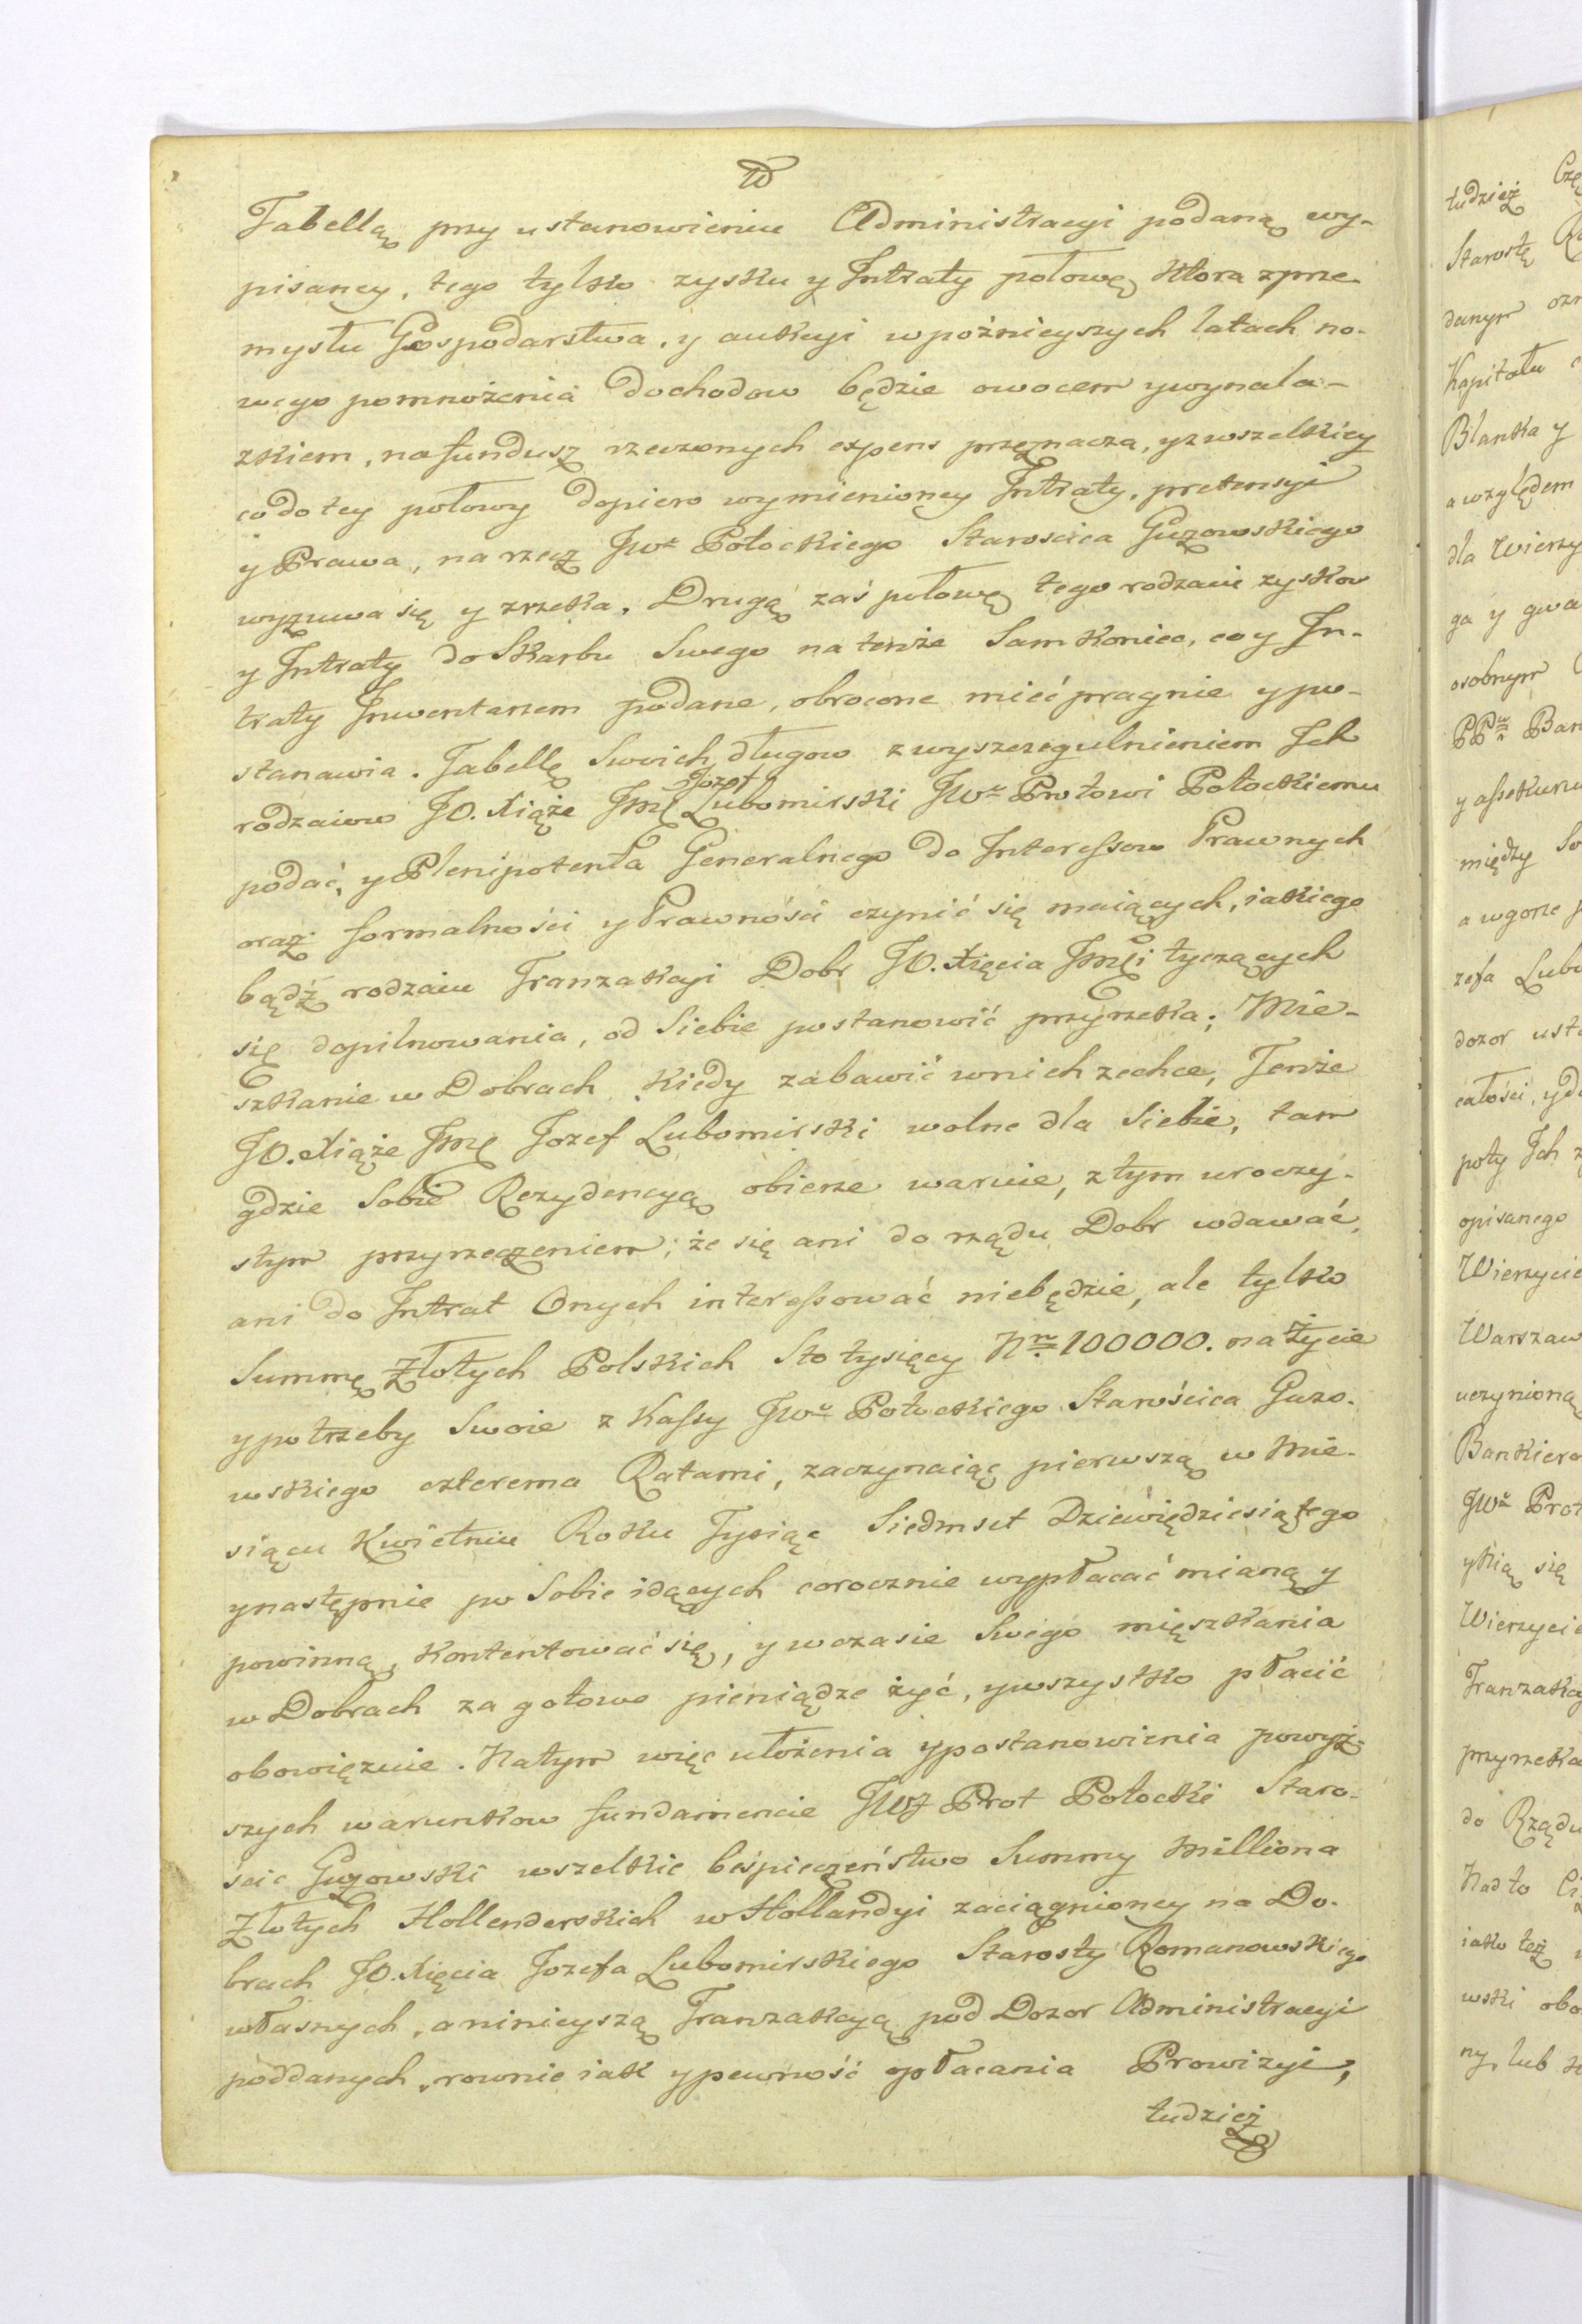 Tabellą przy ustanowieniu Administracyi podaną wy-
pisaney, tego tylko zysku y Intraty połowę, ktora z prze-
mysłu Gospodarstwa, y aukcyi w poźnieyszych latach no-
wego pomnożenia dochodow będzie owocem y wynala-
zkiem, na fundusz rzeczonych expens przeznacza, y z wszelkiey
co do tey połowy dopiero wymienioney Intraty, pretensyi
y Prawa, na rzecz JWo Potockiego Starościca Guzowskiego
wyzuwa się y zrzeka. Drugą zaś połowę tego rodzaiu zyskow
y Intraty do Skarbu Swego na tenże Sam koniec, co y In-
traty Inwentarzem podane, obrocone mieć pragnie y po-
stanawia. Tabellę Swoich długow z wyszczegulnieniem Ich
rodzaiow JO. Xiąże Jmć Jozef Lubomirski JWo Protowi Potockiemu
podać, y Plenipotenta Generalnego do Interessow Prawnych
oraz formalności y Prawności czynić się maiących, iakiego
bądź rodzaiu Tranzakcyi Dobr JO. Xięcia Jmći tyczących
się dopilnowania, od Siebie postanowić przyrzeka; Mie-
szkanie w Dobrach kiedy zabawić w nich zechce, Tenże
JO. Xiąże Jmć Jozef Lubomirski wolne dla Siebie, tam
gdzie Sobie Rezydencyą obierze waruie, z tym uroczy-
stym przyrzeczeniem; że się ani do rządu Dobr wdawać,
ani do Intrat Onych interessować niebędzie, ale tylko
Summę Złotych Polskich Sto tysięcy Nro 100000. na życie
y potrzeby Swoie z Kassy JWo Potockiego Starościca Guzo-
wskiego czterema Ratami, zaczynaiąc pierwszą w Mie-
siącu Kwietniu Roku Tysiąc Siedmset Dziewiędziesiątego
y następnie po Sobie idących corocznie wypłacać mianą y
powinną, kontentować się, y w czasie Swego mięszkania
w Dobrach za gotowe pieniądze żyć, y wszystko płacić
obowięzuie. Na tym więc ułożenia y postanowienia powyż-
szych warunkow fundamencie JWJ Prot Potocki Staro-
ścic Guzowski wszelkie beśpieczeństwo Summy Milliona
Złotych Hollenderskich w Hollandyi zaciągnioney na Do-
brach JO. Xięcia Jozefa Lubomirskiego Starosty Romanowskiego
własnych, a ninieyszą Tranzakcyą pod Dozor Administracyi
poddanych, rownie iak y pewność opłacania Prowizyi,
tudzież
tudzież
Starostę
danym
Kapitału
Blanka y
a względem
dla Wierzy
ga y gwa
osobnym
y assekuru
między So
a w gorze p
zefa Lubo
dozor usta
całości, y d
poty Ich z
opisanego
Wierzycie
Warszaw
uczynioną
Bankiero
JWo Prot
y Nią się
Wierzycie
Tranzakcy
przyrzeka
do Rządu
Nad to
iako też
wski obo
ny, lub